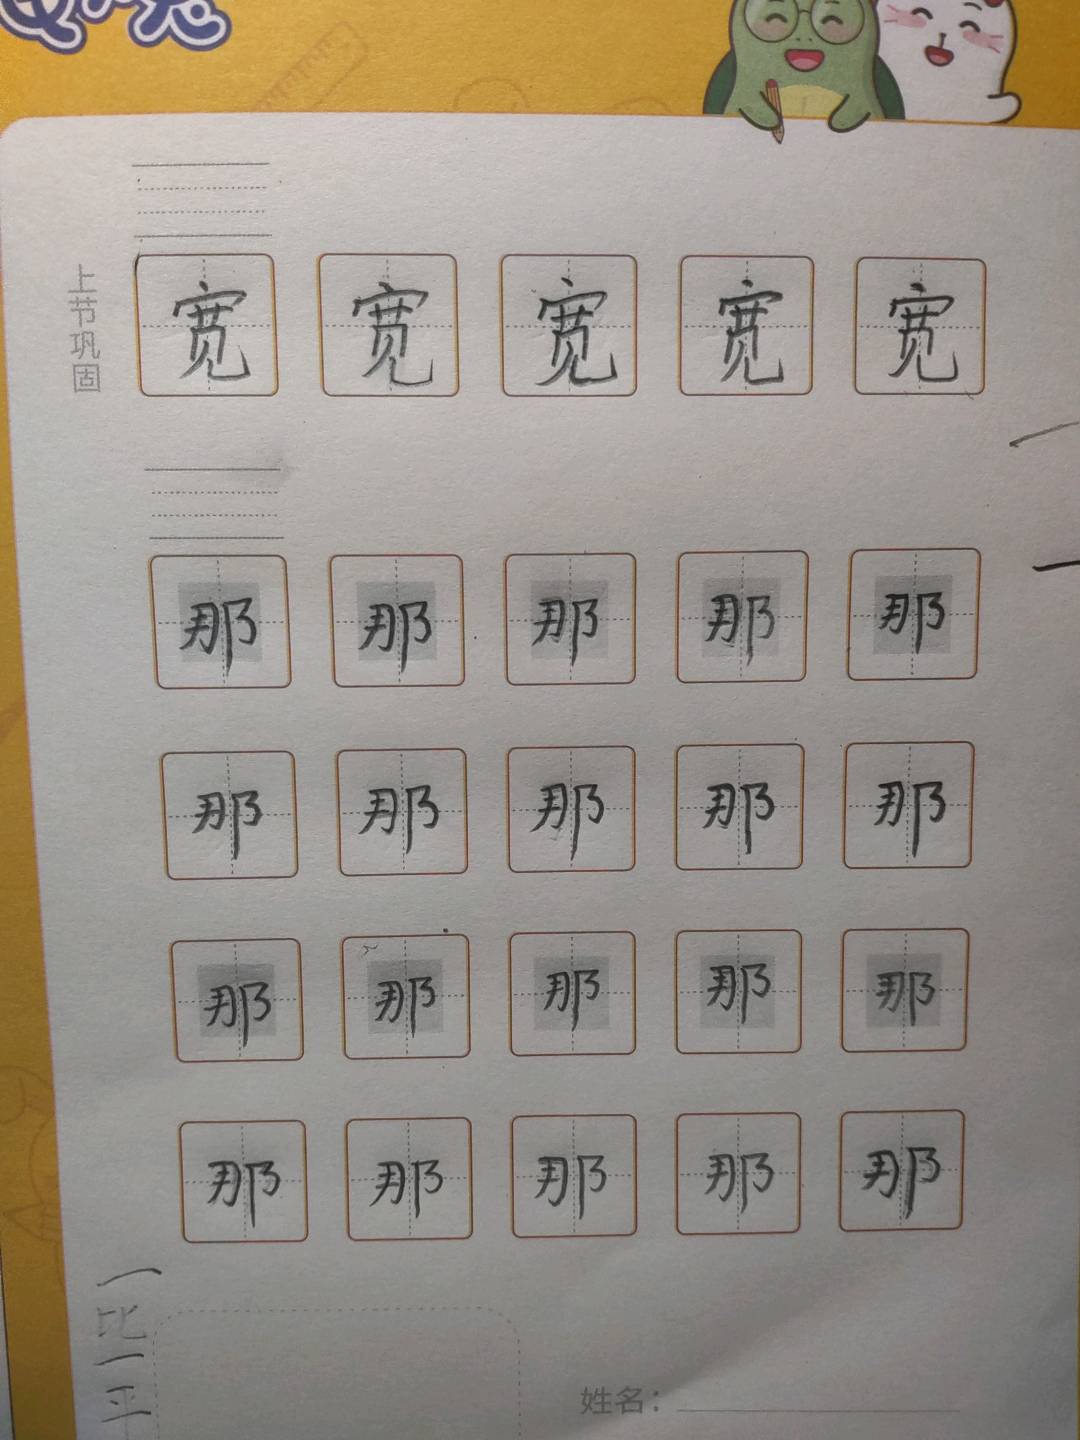 上节巩固
宽 宽 宽 宽 宽
那 那 那 那 那
那 那 那 那 那
那 那 那 那 那
那 那 那 那 那
一比一平
姓名：